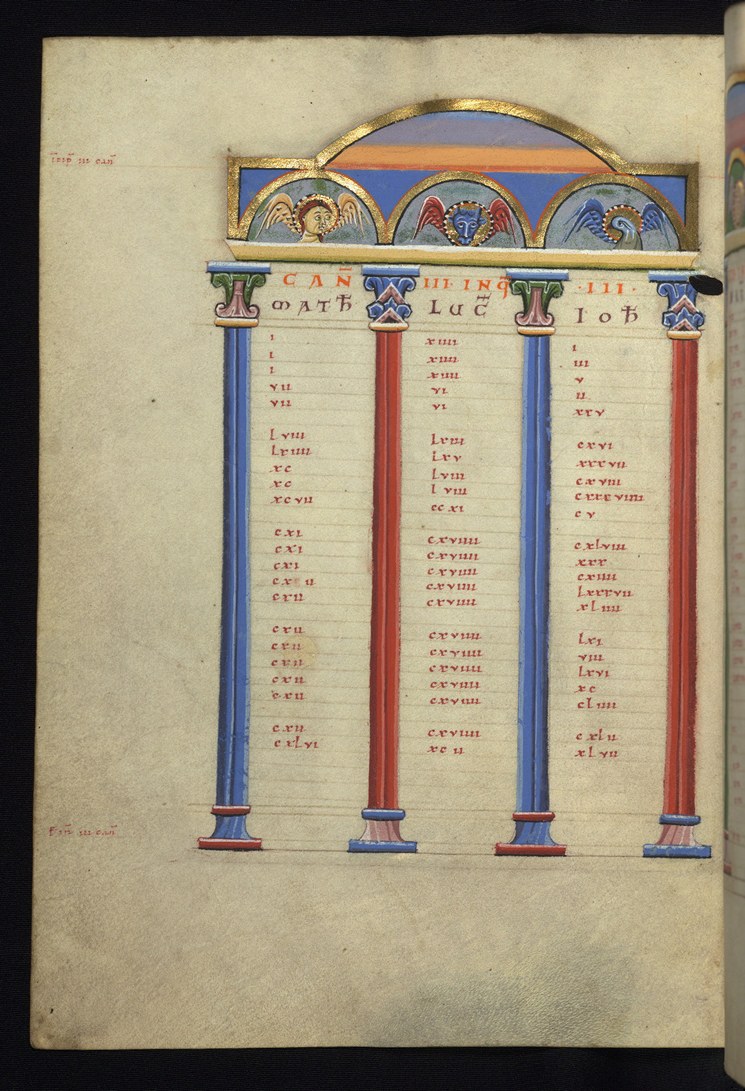 CAN̄ III· INQ̄ ·III·
MATH̄ LUC̄ IOH̄
i xiiii i
i xiiii iii
i xiiii v
vii vi ii
vii vi xxv
lviii lxiii cxvi
lxiiii lxv xxxvii
xc lviii cxviii
xc lviii cxxxviiii
xcvii ccxi cv
cxi cxviiii cxlviii
cxi cxviiii xxx
cxi cxviiii cxiiii
cxviiii lxxxvii
cxii cxviiii xliiii
cxii cxviiii lxi
cxii cxviiii viii
cxii cxviiii lxvi
cxii cxviiii xc
cxii cxviiii cliiii
cxii cxviiii cxlii
cxlvi xcii xlvii
iii can̄
iii can̄